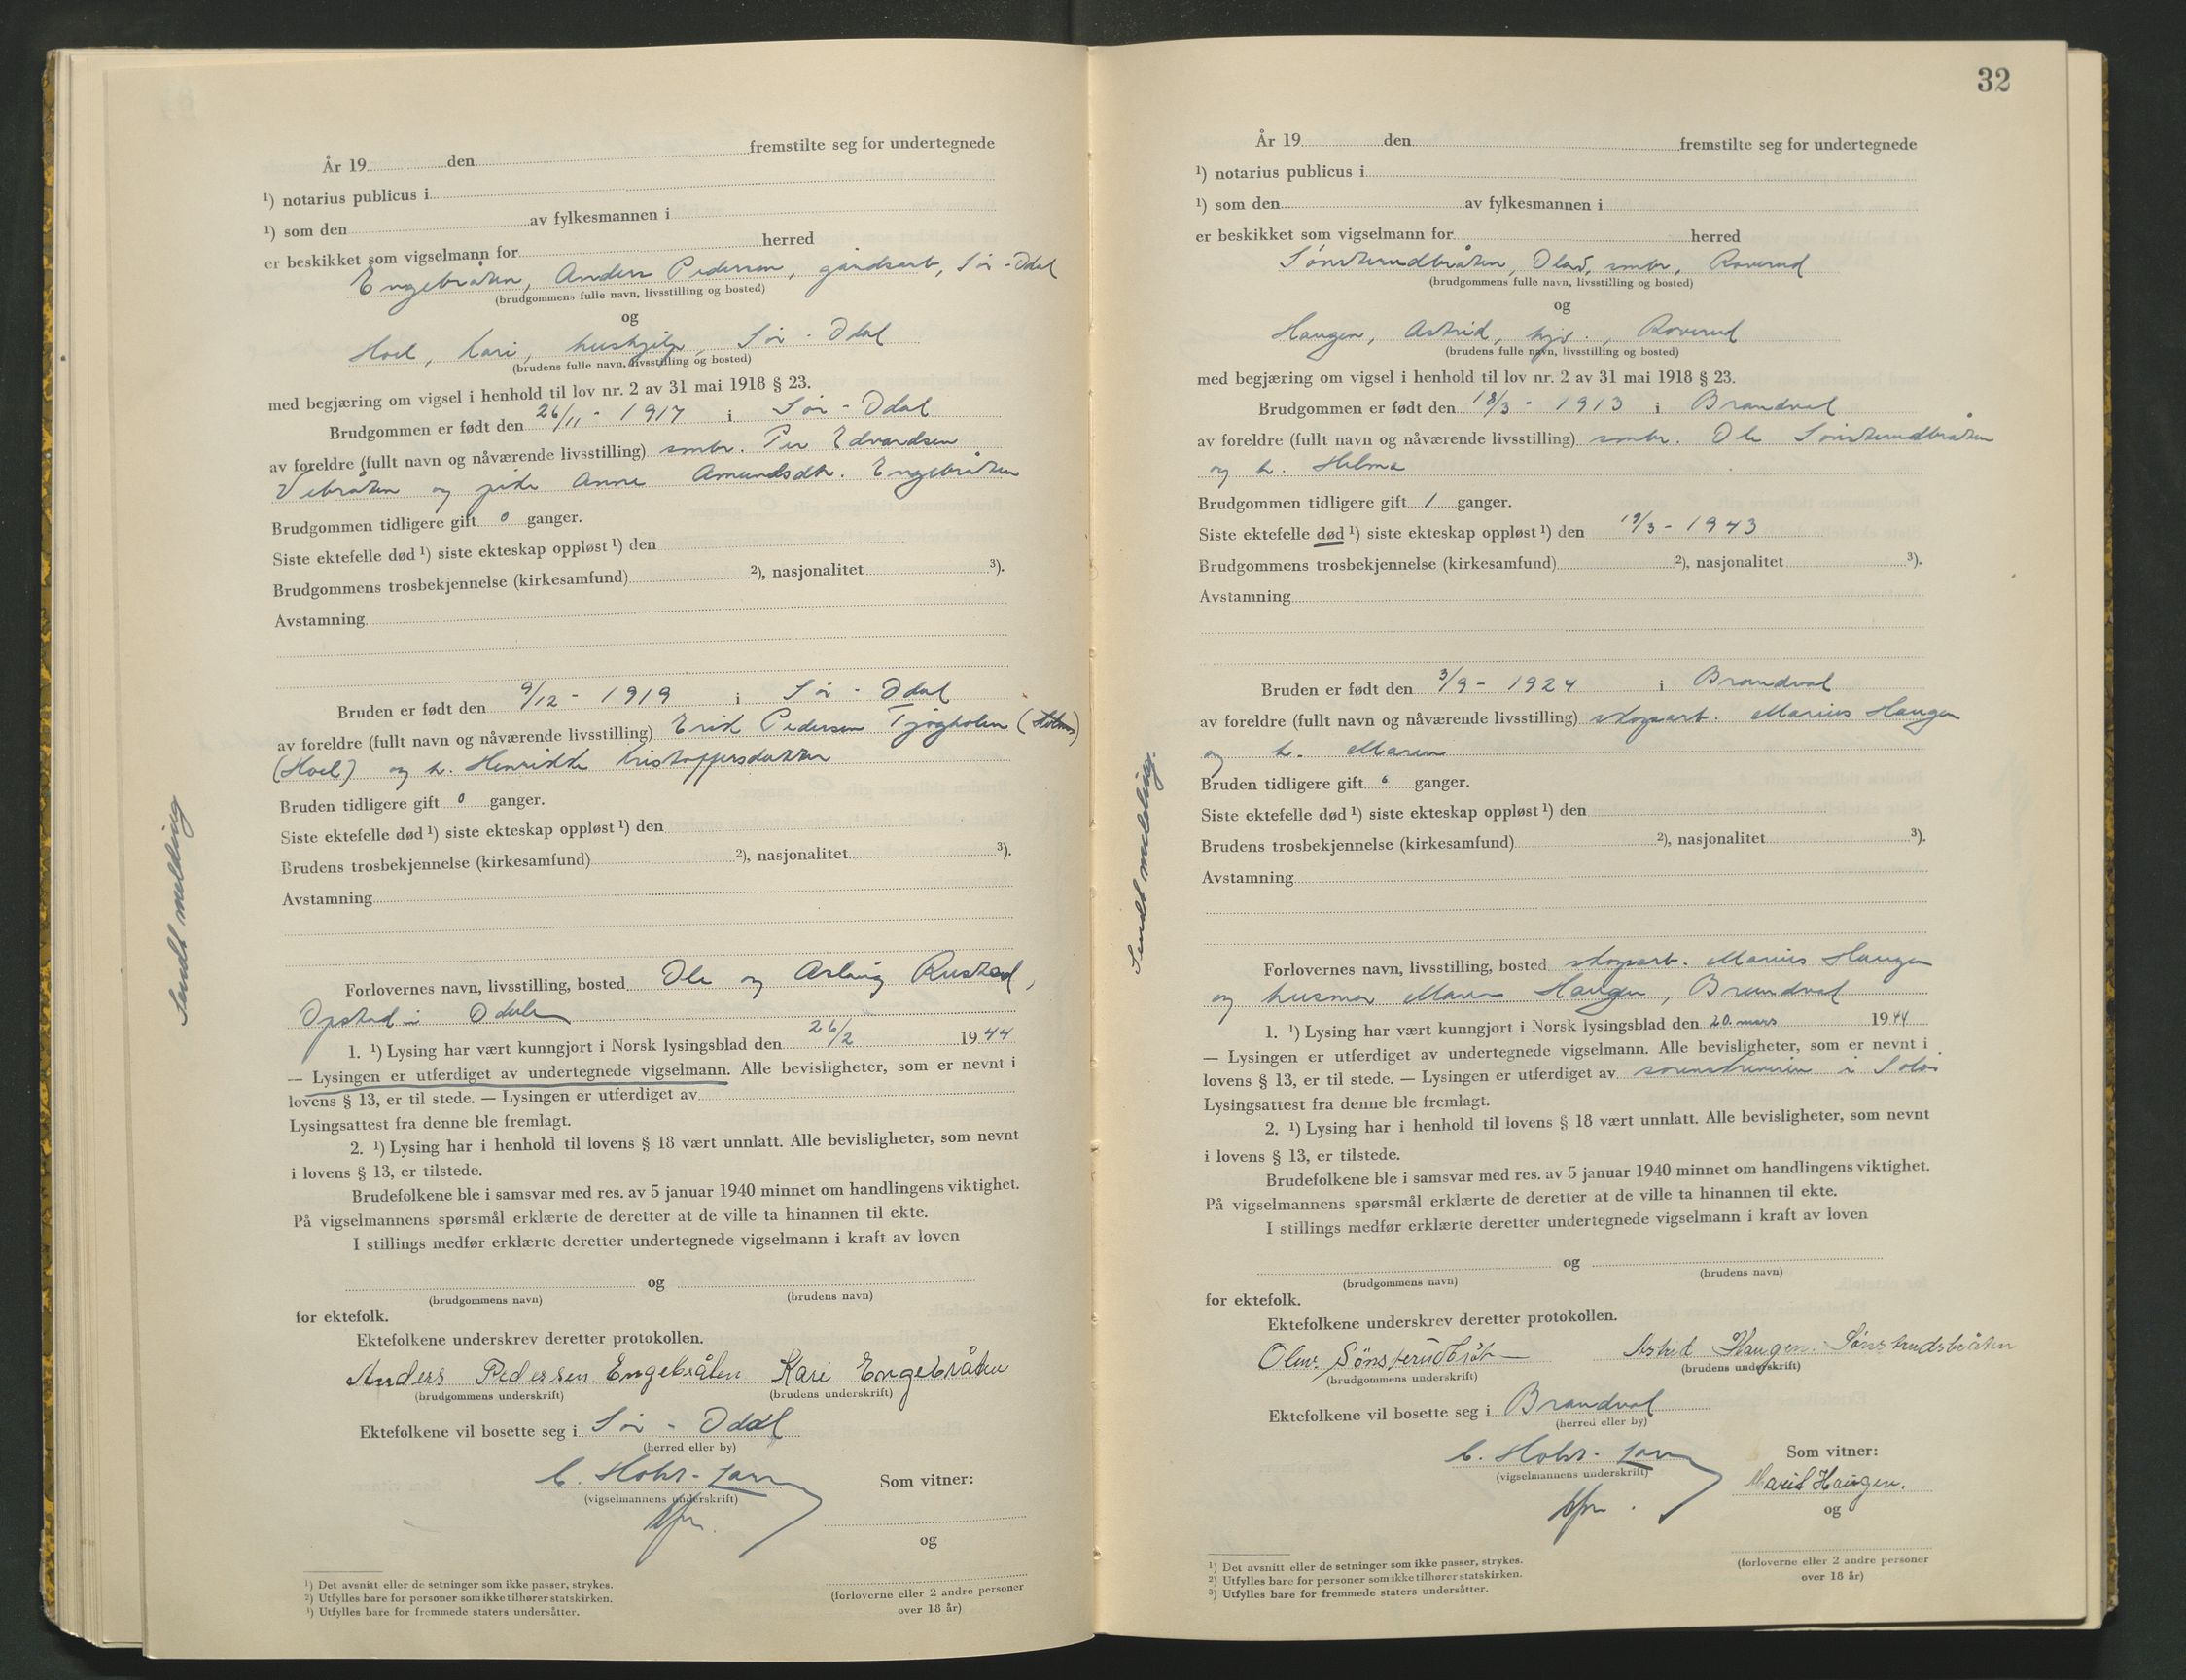 År 19 den fremstilte seg for undertegnede
¹) notarius publicus i
¹) som den av fylkesmannen i
er beskikket som vigselmann for herred
Engebråten, Anders Pedersen, gårdsarb, Sør-Odal
(brudgommens fulle navn, livsstilling og bosted)
og
Hoel, Kari, hushjelp, Sør-Odal
(brudens fulle navn, livsstilling og bosted)
med begjæring om vigsel i henhold til lov nr. 2 av 31 mai 1918 § 23.
Brudgommen er født den 26/11 - 1917 i Sør-Odal
av foreldre (fullt navn og nåværende livsstilling) smbr. Per Edvardsen
Vebråten og pike Anne Amundsdtr. Engebråten
Brudgommen tidligere gift 0 ganger.
Siste ektefelle død ¹) siste ekteskap oppløst ¹) den
Brudgommens trosbekjennelse (kirkesamfund) ²), nasjonalitet ³).
Avstamning
Bruden er født den 9/12 - 1919 i Sør-Odal
av foreldre (fullt navn og nåværende livsstilling) Erik Pedersen
(Hoel) og h. Henrikke Kristoffersdatter
Bruden tidligere gift 0 ganger.
Siste ektefelle død ¹) siste ekteskap oppløst ¹) den
Brudens trosbekjennelse (kirkesamfund) ²), nasjonalitet ³).
Avstamning
Forlovernes navn, livsstilling, bosted Ole og Aslaug Rustad,
Opstad i Odalen
1. ¹) Lysing har vært kunngjort i Norsk lysingsblad den 26/2 1944
— Lysingen er utferdiget av undertegnede vigselmann. Alle bevisligheter, som er nevnt i
lovens § 13, er til stede. — Lysingen er utferdiget av
Lysingsattest fra denne ble fremlagt.
2. ¹) Lysing har i henhold til lovens § 18 vært unnlatt. Alle bevisligheter, som nevnt
i lovens § 13, er tilstede.
Brudefolkene ble i samsvar med res. av 5 januar 1940 minnet om handlingens viktighet.
På vigselmannens spørsmål erklærte de deretter at de ville ta hinannen til ekte.
I stillings medfør erklærte deretter undertegnede vigselmann i kraft av loven
og
(brudgommens navn) (brudens navn)
for ektefolk.
Ektefolkene underskrev deretter protokollen.
Anders Pedersen Engebråten Kari Engebråten
(brudgommens underskrift) (brudens underskrift)
Ektefolkene vil bosette seg i Sør-Odal
(herred eller by)
Som vitner:
(vigselmannens underskrift)
og
¹) Det avsnitt eller de setninger som ikke passer, strykes.
²) Utfylles bare for personer som ikke tilhører statskirken.
³) Utfylles bare for fremmede staters undersåtter.
(forloverne eller 2 andre personer
over 18 år)
Sendt melding
32
År 19 den fremstilte seg for undertegnede
¹) notarius publicus i
¹) som den av fylkesmannen i
er beskikket som vigselmann for herred
Sønsterudbråten, Olav, smbr, Roverud
(brudgommens fulle navn, livsstilling og bosted)
og
Haugen, Astrid, hjv., Roverud
(brudens fulle navn, livsstilling og bosted)
med begjæring om vigsel i henhold til lov nr. 2 av 31 mai 1918 § 23.
Brudgommen er født den 18/3 - 1913 i Brandval
av foreldre (fullt navn og nåværende livsstilling) smbr. Ole Sønsterudbråten
og h. Helma
Brudgommen tidligere gift 1 ganger.
Siste ektefelle død ¹) siste ekteskap oppløst ¹) den 19/3 - 1943
Brudgommens trosbekjennelse (kirkesamfund) ²), nasjonalitet ³).
Avstamning
Bruden er født den 3/9 - 1924 i Brandval
av foreldre (fullt navn og nåværende livsstilling) skogsarb. Marius Haugen
og h. Maren
Bruden tidligere gift 0 ganger.
Siste ektefelle død ¹) siste ekteskap oppløst ¹) den
Brudens trosbekjennelse (kirkesamfund) ²), nasjonalitet ³).
Avstamning
Forlovernes navn, livsstilling, bosted skogsarb. Marius Haugen
og husmor Maren Haugen, Brandval
1. ¹) Lysing har vært kunngjort i Norsk lysingsblad den 20. mars 1944
— Lysingen er utferdiget av undertegnede vigselmann. Alle bevisligheter, som er nevnt i
lovens § 13, er til stede. — Lysingen er utferdiget av sorenskriveren i Solør
Lysingsattest fra denne ble fremlagt.
2. ¹) Lysing har i henhold til lovens § 18 vært unnlatt. Alle bevisligheter, som nevnt
i lovens § 13, er tilstede.
Brudefolkene ble i samsvar med res. av 5 januar 1940 minnet om handlingens viktighet.
På vigselmannens spørsmål erklærte de deretter at de ville ta hinannen til ekte.
I stillings medfør erklærte deretter undertegnede vigselmann i kraft av loven
og
(brudgommens navn) (brudens navn)
for ektefolk.
Ektefolkene underskrev deretter protokollen.
Olav Sønsterudbråt Astrid Haugen Sønsterudsbråten
(brudgommens underskrift) (brudens underskrift)
Ektefolkene vil bosette seg i Brandval
(herred eller by)
Som vitner:
(vigselmannens underskrift) Marit Haugen.
og
¹) Det avsnitt eller de setninger som ikke passer, strykes.
²) Utfylles bare for personer som ikke tilhører statskirken.
³) Utfylles bare for fremmede staters undersåtter.
(forloverne eller 2 andre personer
over 18 år)
Sendt melding.